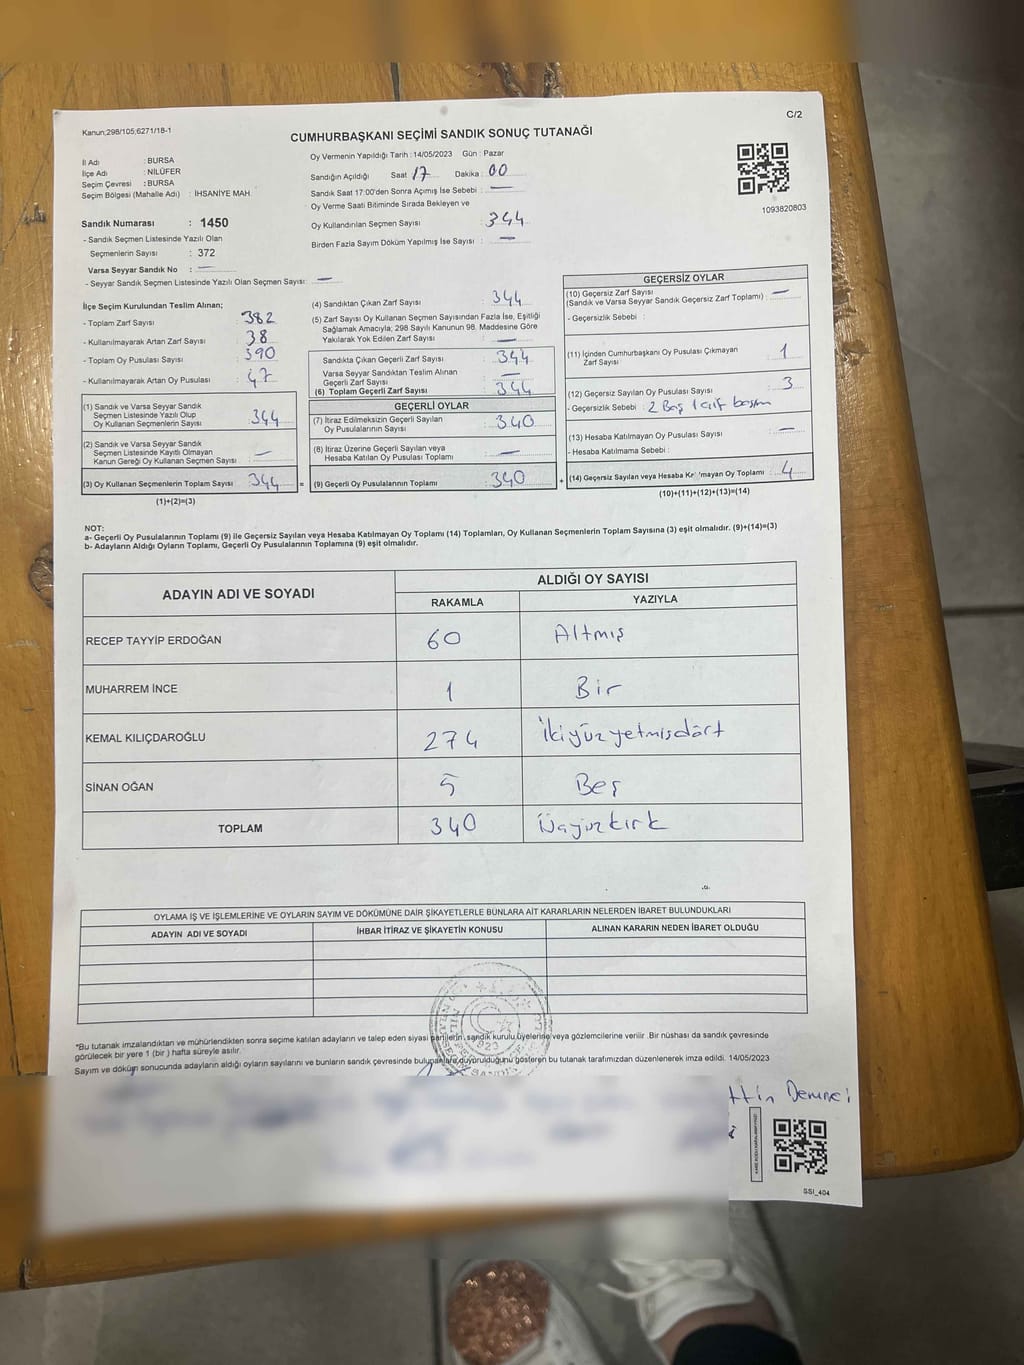 Kanun;298/105;6271/18-1
C/2
CUMHURBAŞKANI SEÇİMİ SANDIK SONUÇ TUTANAĞI
İl Adı : BURSA
İlçe Adı : NİLÜFER
Seçim Çevresi : BURSA
Seçim Bölgesi (Mahalle Adı) : İHSANİYE MAH
Sandık Numarası : 1450
- Sandık Seçmen Listesinde Yazılı Olan
Seçmenlerin Sayısı : 372
Varsa Seyyar Sandık No : —
- Seyyar Sandık Seçmen Listesinde Yazılı Olan Seçmen Sayısı: —
Oy Vermenin Yapıldığı Tarih : 14/05/2023 Gün : Pazar
Sandığın Açıldığı Saat 17 Dakika 00
Sandık Saat 17:00'den Sonra Açımış İse Sebebi : —
Oy Verme Saati Bitiminde Sırada Bekleyen ve
Oy Kullandırılan Seçmen Sayısı : 344
Birden Fazla Sayım Döküm Yapılmış İse Sayısı : —
1093820803
İlçe Seçim Kurulundan Teslim Alınan;
- Toplam Zarf Sayısı : 382
- Kullanılmayarak Artan Zarf Sayısı : 38
- Toplam Oy Pusulası Sayısı : 390
- Kullanılmayarak Artan Oy Pusulası : 47
(1) Sandık ve Varsa Seyyar Sandık
Seçmen Listesinde Yazılı Olup
Oy Kullanan Seçmenlerin Sayısı : 344
(2) Sandık ve Varsa Seyyar Sandık
Seçmen Listesinde Kayıtlı Olmayan
Kanun Gereği Oy Kullanan Seçmen Sayısı : —
(3) Oy Kullanan Seçmenlerin Toplam Sayısı : 344 =
(1)+(2)=(3)
(4) Sandıktan Çıkan Zarf Sayısı : 344
(5) Zarf Sayısı Oy Kullanan Seçmen Sayısından Fazla İse, Eşitliği
Sağlamak Amacıyla; 298 Sayılı Kanunun 98. Maddesine Göre
Yakılarak Yok Edilen Zarf Sayısı : —
Sandıkta Çıkan Geçerli Zarf Sayısı : 344
Varsa Seyyar Sandıktan Teslim Alınan
Geçerli Zarf Sayısı : —
(6) Toplam Geçerli Zarf Sayısı : 344
GEÇERLİ OYLAR
(7) İtiraz Edilmeksizin Geçerli Sayılan
Oy Pusulalarının Sayısı : 340
(8) İtiraz Üzerine Geçerli Sayılan veya
Hesaba Katılan Oy Pusulası Toplamı : —
(9) Geçerli Oy Pusulalarının Toplamı : 340 +
GEÇERSİZ OYLAR
(10) Geçersiz Zarf Sayısı
(Sandık ve Varsa Seyyar Sandık Geçersiz Zarf Toplamı) : —
- Geçersizlik Sebebi :
(11) İçinden Cumhurbaşkanı Oy Pusulası Çıkmayan
Zarf Sayısı : 1
(12) Geçersiz Sayılan Oy Pusulası Sayısı : 3
- Geçersizlik Sebebi : 2 Boş 1 çift basım
(13) Hesaba Katılmayan Oy Pusulası Sayısı : —
- Hesaba Katılmama Sebebi :
(14) Geçersiz Sayılan veya Hesaba Katılmayan Oy Toplamı : 4
(10)+(11)+(12)+(13)=(14)
NOT:
a- Geçerli Oy Pusulalarının Toplamı (9) ile Geçersiz Sayılan veya Hesaba Katılmayan Oy Toplamı (14) Toplamları, Oy Kullanan Seçmenlerin Toplam Sayısına (3) eşit olmalıdır. (9)+(14)=(3)
b- Adayların Aldığı Oyların Toplamı, Geçerli Oy Pusulalarının Toplamına (9) eşit olmalıdır.
ADAYIN ADI VE SOYADI ALDIĞI OY SAYISI
RAKAMLA YAZIYLA
RECEP TAYYİP ERDOĞAN 60 Altmış
MUHARREM İNCE 1 Bir
KEMAL KILIÇDAROĞLU 274 İkiyüzyetmişdört
SİNAN OĞAN 5 Beş
TOPLAM 340 Üçyüzkırk
OYLAMA İŞ VE İŞLEMLERİNE VE OYLARIN SAYIM VE DÖKÜMÜNE DAİR ŞİKAYETLERLE BUNLARA AİT KARARLARIN NELERDEN İBARET BULUNDUKLARI
ADAYIN ADI VE SOYADI İHBAR İTİRAZ VE ŞİKAYETİN KONUSU ALINAN KARARIN NEDEN İBARET OLDUĞU
*Bu tutanak imzalandıktan ve mühürlendikten sonra seçime katılan adayların ve talep eden siyasi partilerin sandık kurulu üyelerine veya gözlemcilerine verilir .Bir nüshası da sandık çevresinde
görülecek bir yere 1 (bir ) hafta süreyle asılır.
Sayım ve döküm sonucunda adayların aldığı oyların sayılarını ve bunların sandık çevresinde bulunanlara duyurulduğunu gösteren bu tutanak tarafımızdan düzenlenerek imza edildi. 14/05/2023
ttin Demirci
SSI_404